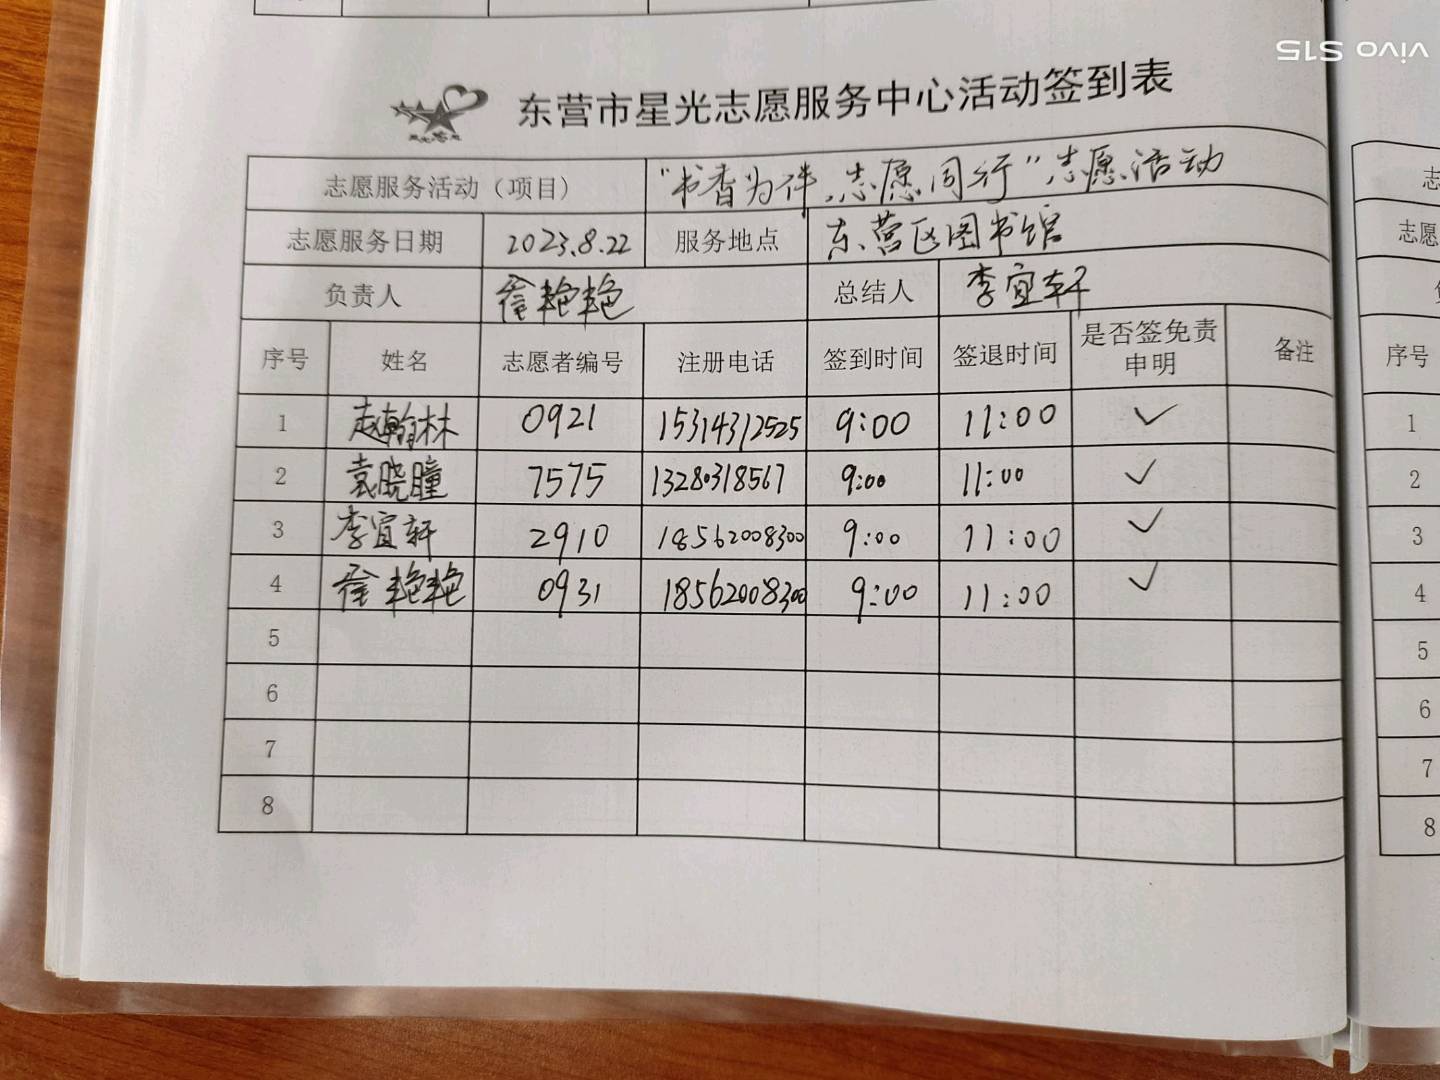 vivo S15
东营市星光志愿服务中心活动签到表
志愿服务活动（项目） "书香为伴,志愿同行"志愿活动
志愿服务日期 2023.8.22 服务地点 东营区图书馆
负责人 徐艳艳 总结人 李宜轩
序号 姓名 志愿者编号 注册电话 签到时间 签退时间 是否签免责申明 备注
1 赵翰林 0921 15314312525 9:00 11:00 ✓
2 袁晓瞳 7575 13280318567 9:00 11:00 ✓
3 李宜轩 2910 18562008300 9:00 11:00 ✓
4 徐艳艳 0931 18562008300 9:00 11:00 ✓
5
6
7
8
志愿
序号
1
2
3
4
5
6
7
8